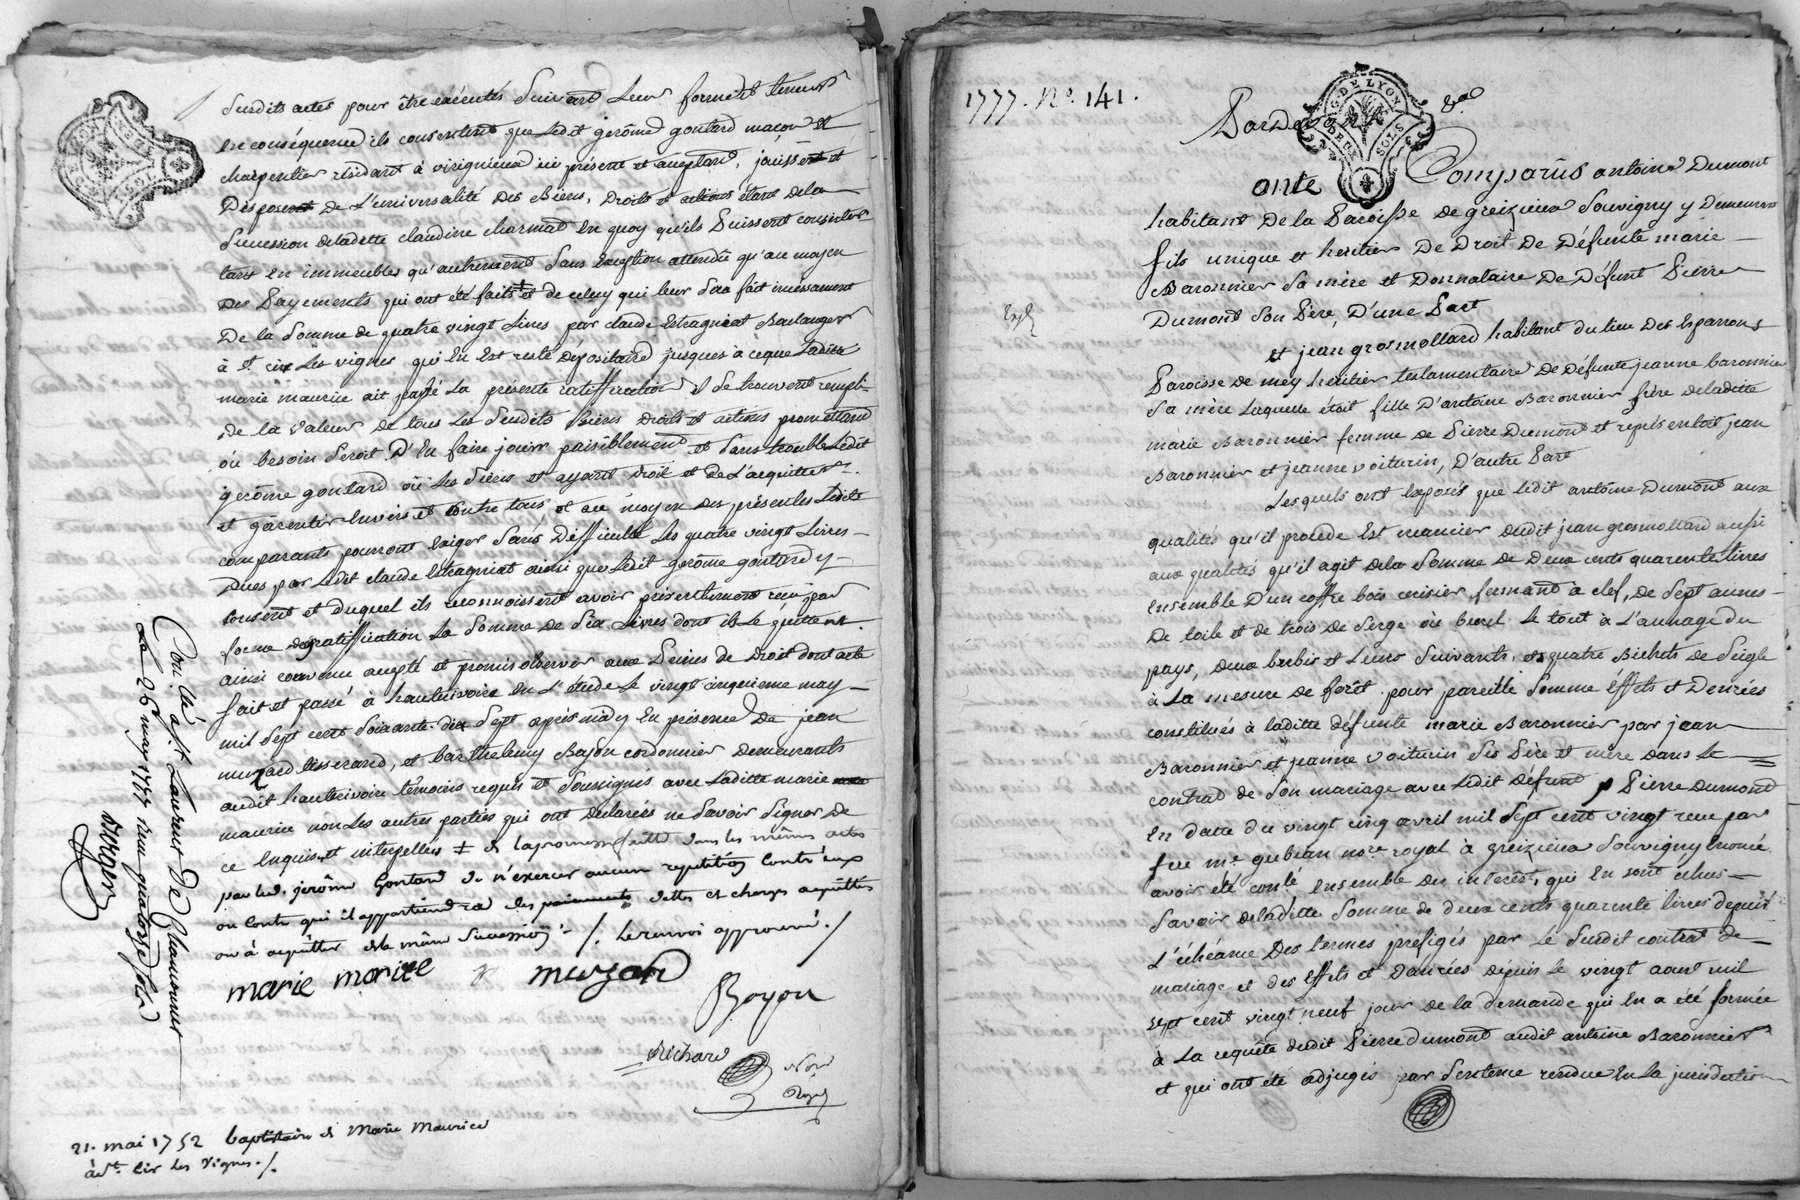 susdits actes pour être exécutés suivant leur forme et teneur
en conséquence ils consentent que ledit gerôme gontard maçon et
charpentier résidant à virignieux icy présent et aceptant, jouisse et
dispose de l'universalité des biens, droits et actions étant de la
sucession de laditte claudine charmat en quoy qu'ils puissent consister
tant en immeubles qu'autrement sans exception attendu qu'au moyen
des payements qui ont été faits et de celuy qui leur sera fait incessament
de la somme de quatre vingt livres par claude boulanger
à st. cir les vignes qui en est resté dépositaire jusques à ceque laditte
marie maurice ait passé la présente ratiffication il se trouvent rempli
de la valeur de tous les susdits biens droits et actions promettant
où besoin seroit d'en faire jouir paisiblement et sans trouble ledit
gerôme gontard où les siens et ayants droit et de l'acquitter
et garentir envers et contre tous et au moyen des présentes lesdits
comparants pourront exiger sans difficulté les quatre vingt livres
dues par ledit claude ainsi que ledit gerôme gontard y
consent et duquel ils reconnoissent avoir présentement reçu par
forme de gratiffication la somme de six livres dont ils le quittent.
ainsi convenu acepté et promis observer aux peines de droit dont acte
fait et passé à hauterivoire en l'étude le vingt cinquieme may
mil sept cent soixante dix sept après midy en présence de jean
muzard tisserand, et barthelemy Boyon cordonnier demeurants
audit hauterivoire témoins requis et soussignés avec laditte marie
maurice non les autres parties qui ont déclarées ne savoir signer de
ce enquis et interpellés ‡ et la promesse faitte dans les mêmes actes
par led. jerôme Gontard de n'exercer aucune repetition contr'eux
ou contre qui il appartiendra des paiements dettes et charges acquittés
ou à acquitter de la même sucession ./. le renvoi approuvé ./
marie morize muzard
Boyon
Richard
Nore
Royal
Con.lé à St Laurent De Chamousset
Le 26 may 1777 reçu quatorze sols
21. mai 1752 baptistaire de Marie Maurice
à st. Cir les Vignes ./.
1777. No. 141.
Pardevant &a
G. DE LYON
DEUX SOLS
Comparûs antoine Dumont
habitant de la Paroisse de greizieux Souvigny y demeurant
fils unique et heritier de droit de défunte marie
Baronnier sa mère et donnataire de défunt Pierre
Dumont son Père, d'une Part
et jean grosmollard habitant du lieu des Esparrons
Paroisse de mey heritier testamentaire de défunte jeanne baronnier
sa mère laquelle étoit fille d'antoine Baronnier frère de laditte
marie Baronnier femme de Pierre Dumont et représentoit jean
Baronnier et jeanne voiturin, d'autre Part
Lesquels ont exposés que ledit antoine Dumont aux
qualités qu'il procède est créancier dudit jean grosmollard aussi
aux qualités qu'il agit de la somme de deux cents quarente livres
ensemble d'un coffre bois cerisier fermant à clef, de sept aunes
de toile et de trois de serge où bural le tout à l'aunage du
pays, deux brebis et leurs suivants, et quatre Bichets de seigle
à la mesure de forêt pour pareille somme éffets et denrées
constitués à laditte défunte marie Baronnier par jean
Baronnier et jeanne voiturin ses Père et mère dans le
contrat de son mariage avec ledit défunt Pierre Dumont
en datte du vingt cinq avril mil sept cent vingt reçu par
feu me. gubian nore. royal à greizieux Souvigny
avoir été con.lé ensemble des interêts, qui en sont échus
savoir de laditte somme de deux cents quarente livres depuis
l'échéance des termes préfigés par le susdit contrat de
mariage et des effets et danrées depuis le vingt aoust mil
sept cent vingt neuf jour de la demande qui en a été formée
à la requête dudit Pierre dumont audit antoine Baronnier
et qui ont été adjugés par sentence rendue en la jurisdiction